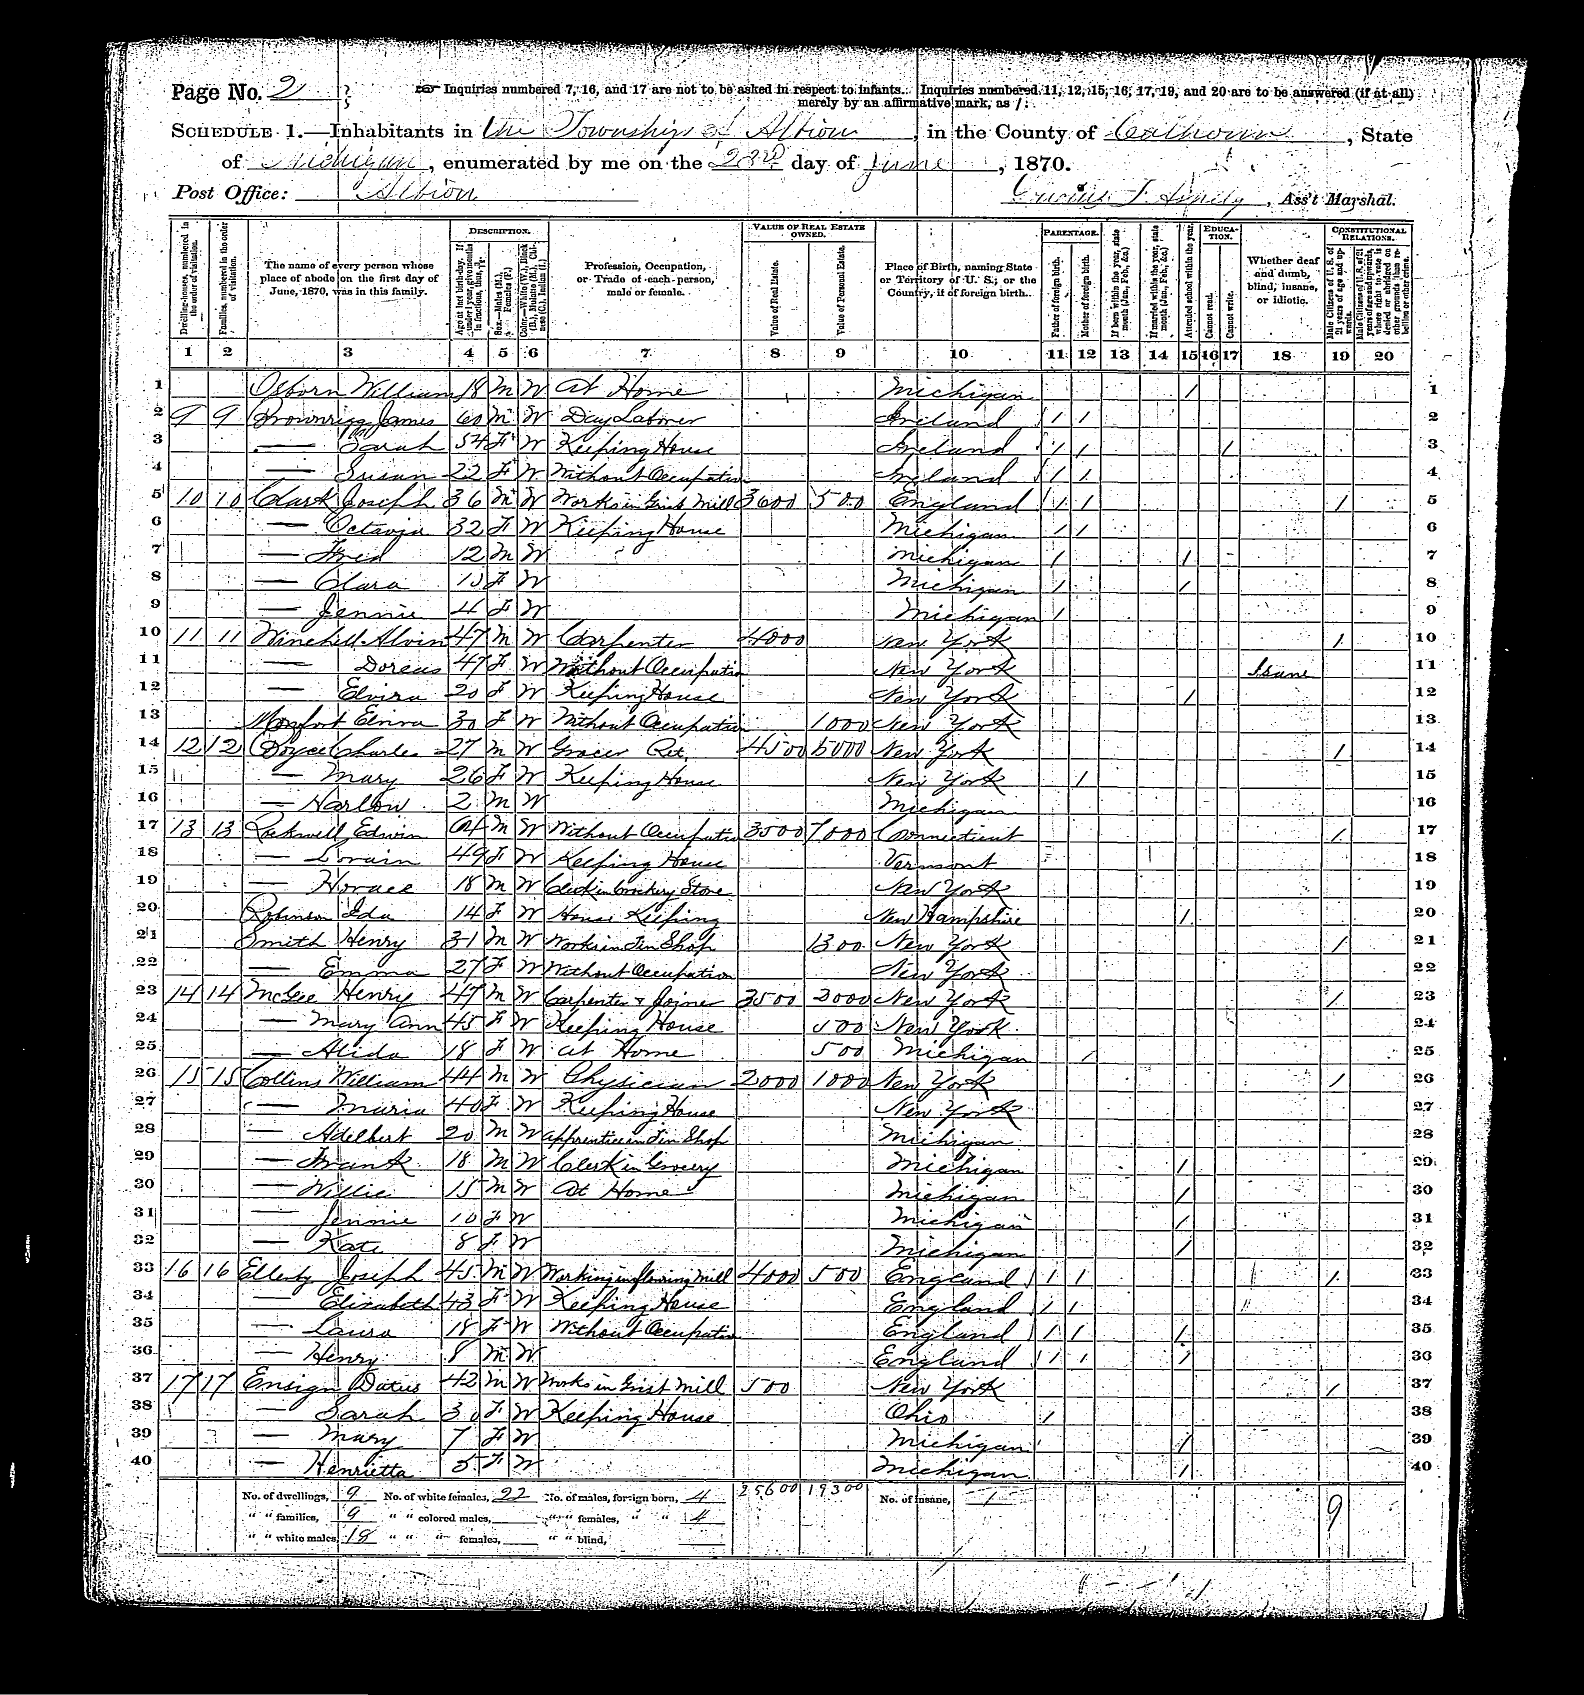 Page No. 2 Inquiries numbered 7, 16, and 17 are not to be asked in respect to infants. Inquiries numbered 11, 12, 15, 16, 17, 19, and 20 are to be answered (if at all)
merely by an affirmative mark, as /.
SCHEDULE 1.—Inhabitants in the Township of Albion, in the County of Calhoun, State
of Michigan, enumerated by me on the 23rd day of June, 1870.
Post Office: Albion , Ass't Marshal.
DESCRIPTION. VALUE OF REAL ESTATE OWNED. PARENTAGE. EDUCATION. CONSTITUTIONAL RELATIONS.
Dwelling-houses, numbered in the order of visitation. Families, numbered in the order of visitation. The name of every person whose place of abode on the first day of June, 1870, was in this family. Age at last birth-day. If under 1 year, give months in fractions, thus, Sex.—Males (M.), Females (F.) Color.—White (W.), Black (B.), Mulatto (M.), Chinese (C.), Indian (I.) Profession, Occupation, or Trade of each person, male or female. Value of Real Estate. Value of Personal Estate. Place of Birth, naming State or Territory of U. S.; or the Country, if of foreign birth. Father of foreign birth. Mother of foreign birth. If born within the year, state month (Jan., Feb., &c.) If married within the year, state month (Jan., Feb., &c.) Attended school within the year. Cannot read. Cannot write. Whether deaf and dumb, blind, insane, or idiotic. Male Citizens of U. S. of 21 years of age and upwards. Male Citizens of U. S. of 21 years of age and upwards, where right to vote is denied or abridged on other grounds than rebellion or other crime.
1 2 3 4 5 6 7 8 9 10 11 12 13 14 15 16 17 18 19 20
1 Osborn William 18 M W At Home Michigan / 1
2 9 9 Brownrigg James 60 M W Day Laborer Ireland / / 2
3 — Sarah 54 F W Keeping House Ireland / / / 3
4 — Susan 22 F W Without Occupation Ireland / / 4
5 10 10 Clark Joseph 36 M W Works in Grist Mill 3600 500 England / / / 5
6 — Octavia 32 F W Keeping House Michigan / / 6
7 — Fred 12 M W Michigan / / 7
8 — Clara 10 F W Michigan / / 8
9 — Jennie 4 F W Michigan / 9
10 11 11 Winchell Alvin 47 M W Carpenter 4000 New York / 10
11 — Dorcas 47 F W Without Occupation New York Isane 11
12 — Elvira 20 F W Keeping House New York / 12
13 Monfort Elnira 30 F W Without Occupation 1000 New York 13
14 12 12 Doyce Charles 27 M W Grocer Ret. 4500 5000 New York / 14
15 — Mary 26 F W Keeping House New York / 15
16 — Harlow 2 M W Michigan 16
17 13 13 Rockwell Edwin M W Without Occupation 3500 7000 Connecticut / 17
18 — Lorain 49 F W Keeping House Vermont 18
19 — Horace 18 M W Clerk in Crockery Store New York 19
20 Robinson Ida 14 F W House Keeping New Hampshire / 20
21 Smith Henry 31 M W Works in Tin Shop 1300 New York / 21
22 — Emma 27 F W Without Occupation New York 22
23 14 14 McGee Henry 47 M W Carpenter & Joiner 3500 2000 New York / 23
24 — Mary Ann 45 F W Keeping House 500 New York 24
25 — Alida 18 F W At Home 500 Michigan / 25
26 15 15 Collins William 44 M W Physician 2000 1000 New York / 26
27 — Maria 40 F W Keeping House New York 27
28 — Adelbert 20 M W Apprentice in Tin Shop Michigan 28
29 — Frank 18 M W Clerk in Grocery Michigan / 29
30 — Willie 15 M W At Home Michigan / 30
31 — Jennie 10 F W Michigan / 31
32 — Kate 8 F W Michigan / 32
33 16 16 Ellerby Joseph 45 M W Working in flowring Mill 4000 500 England / / / 33
34 — Elizabeth 43 F W Keeping House England / / 34
35 — Laura 18 F W Without Occupation England / / / 35
36 — Henry 8 M W England / / / 36
37 17 17 Ensign Datus 42 M W Works in Grist Mill 500 New York / 37
38 — Sarah 30 F W Keeping House Ohio / 38
39 — Mary 7 F W Michigan / 39
40 — Henrietta 5 F W Michigan / 40
No. of dwellings, 9 No. of white females, 22 No. of males, foreign born, 4 25600 19300 No. of insane, 1 9
" " families, 9 " " colored males, " " females, " " 4
" " white males, 18 " " " females, " " blind,